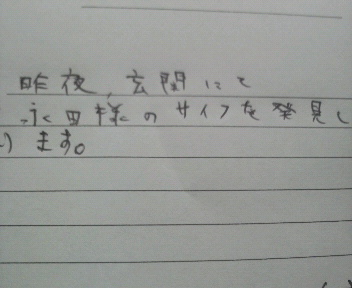 昨夜、玄関にて
永田様のサイフを発見し
ます。